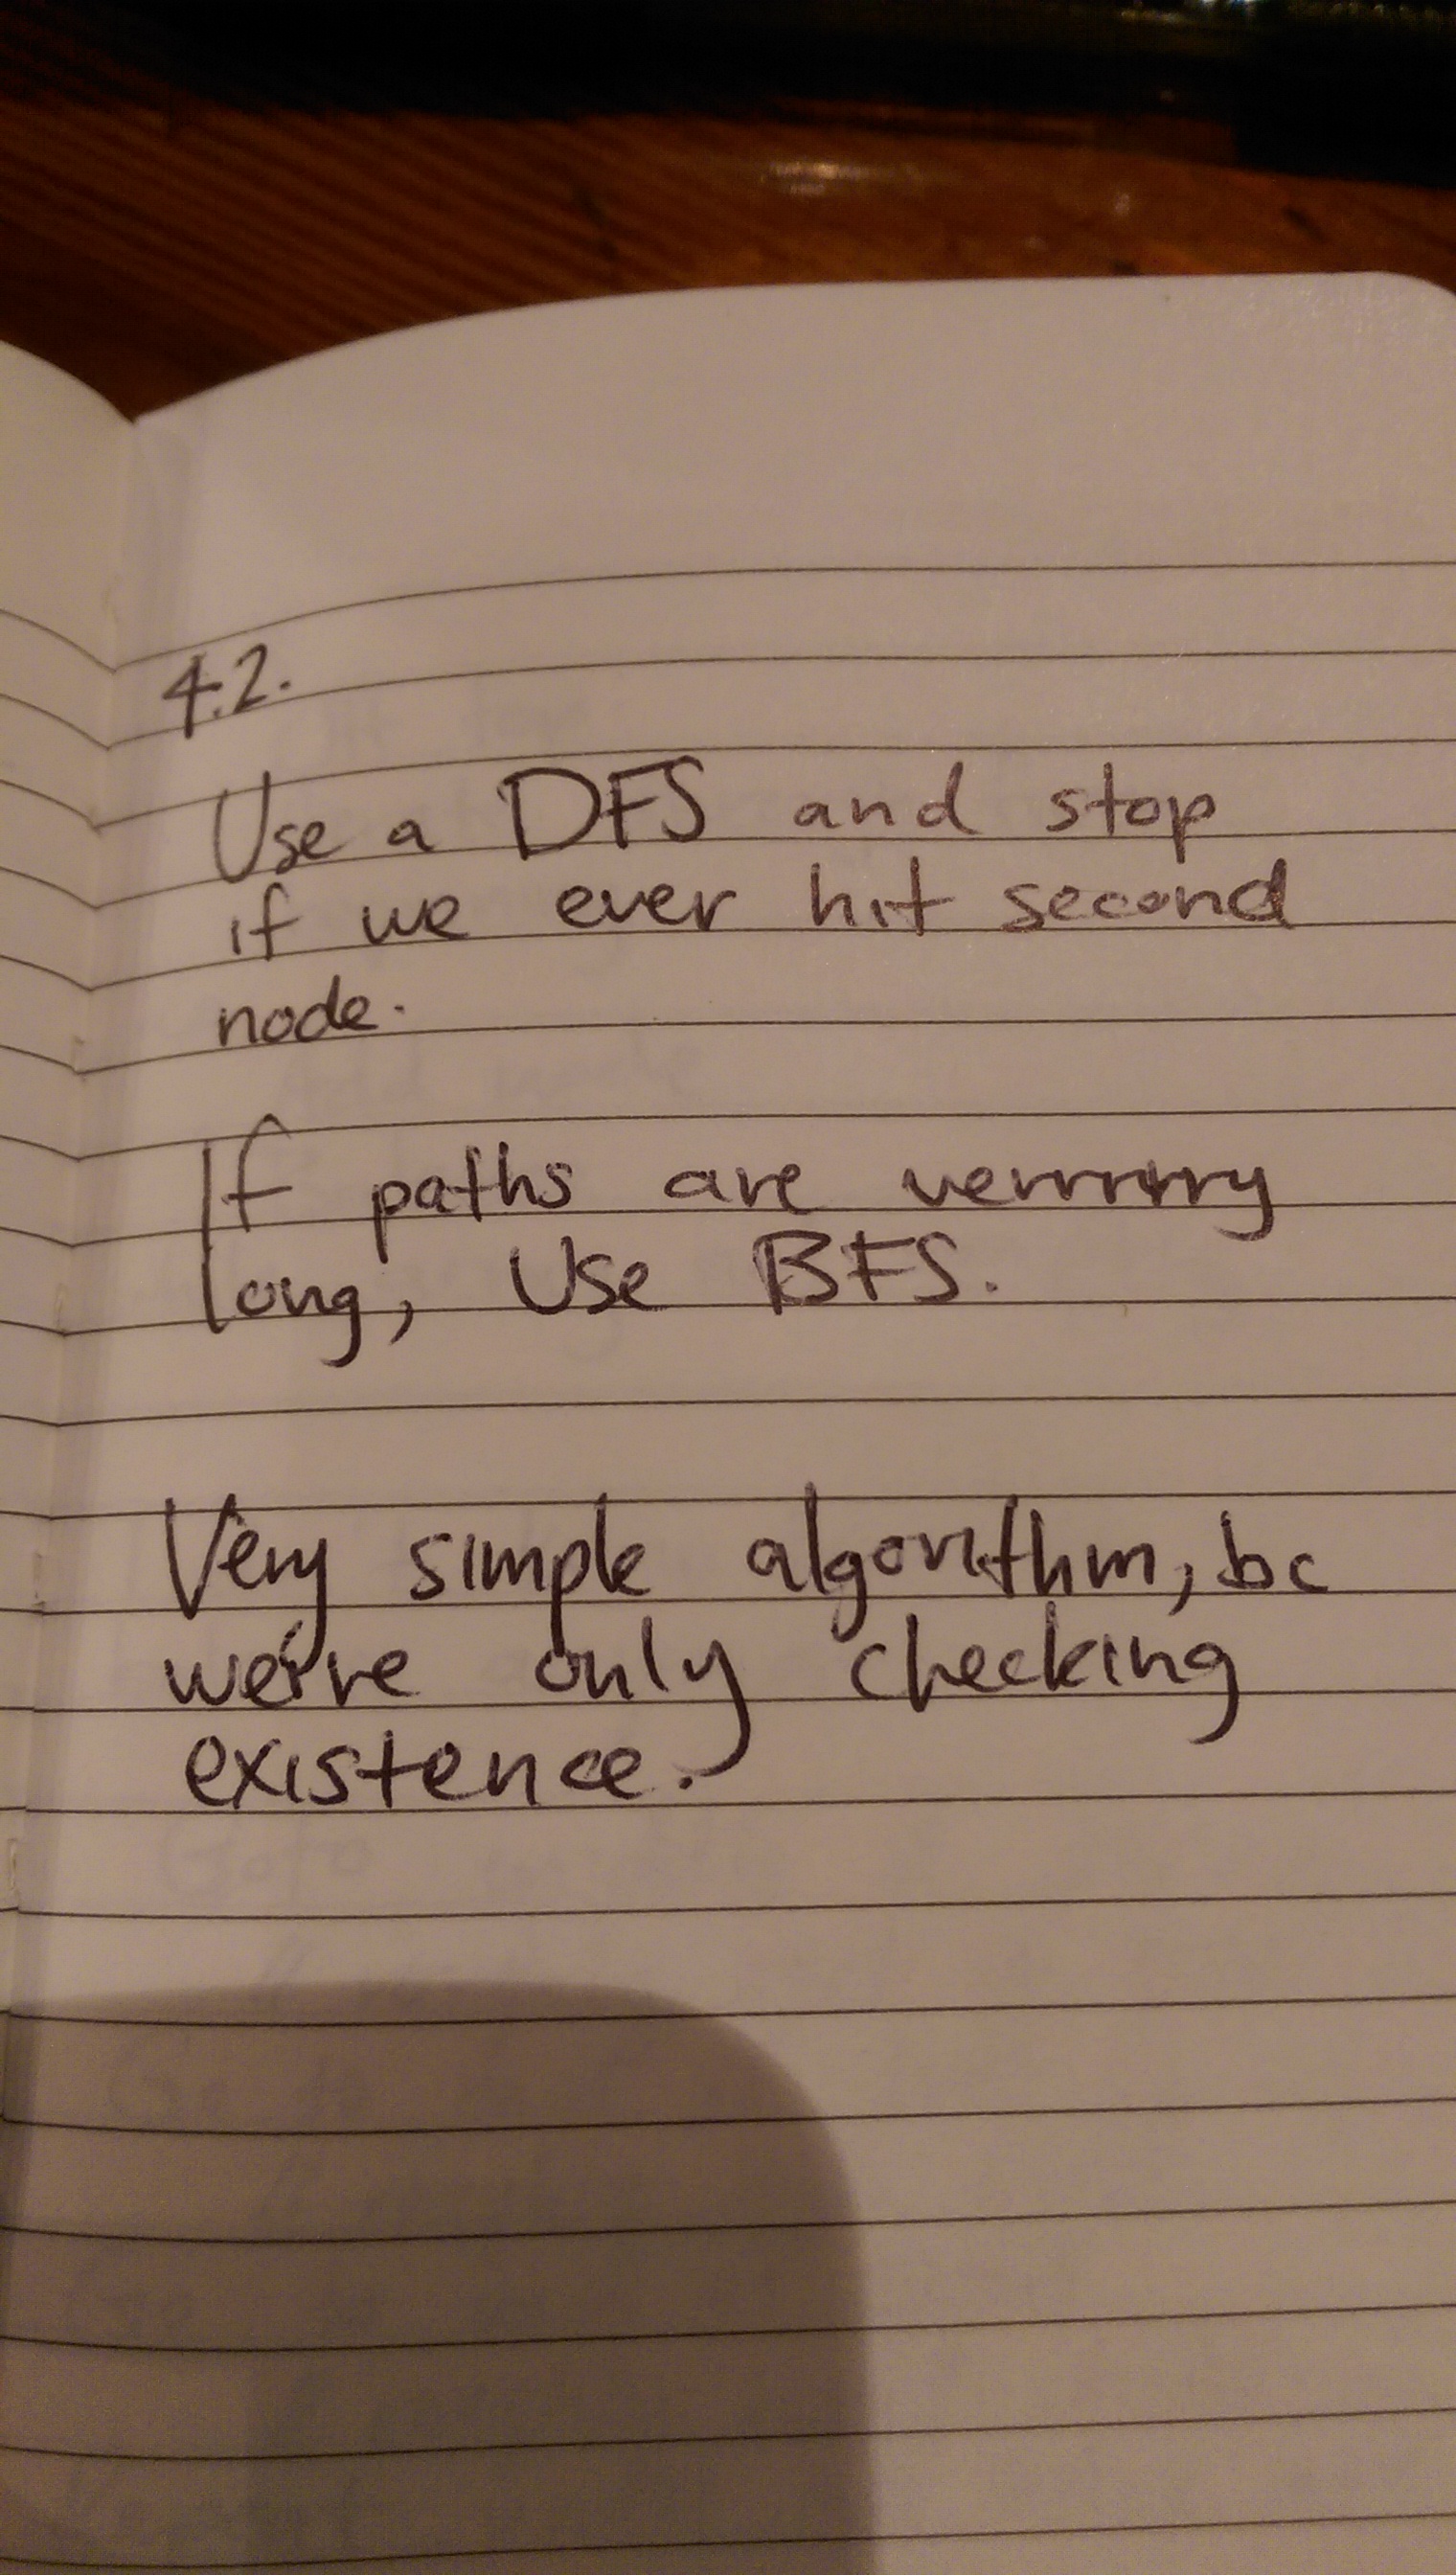 4.2.
Use a DFS and stop
if we ever hit second
node.
If paths are verrrrrry
long, Use BFS.
Very simple algorithm, bc
we're only checking
existence.